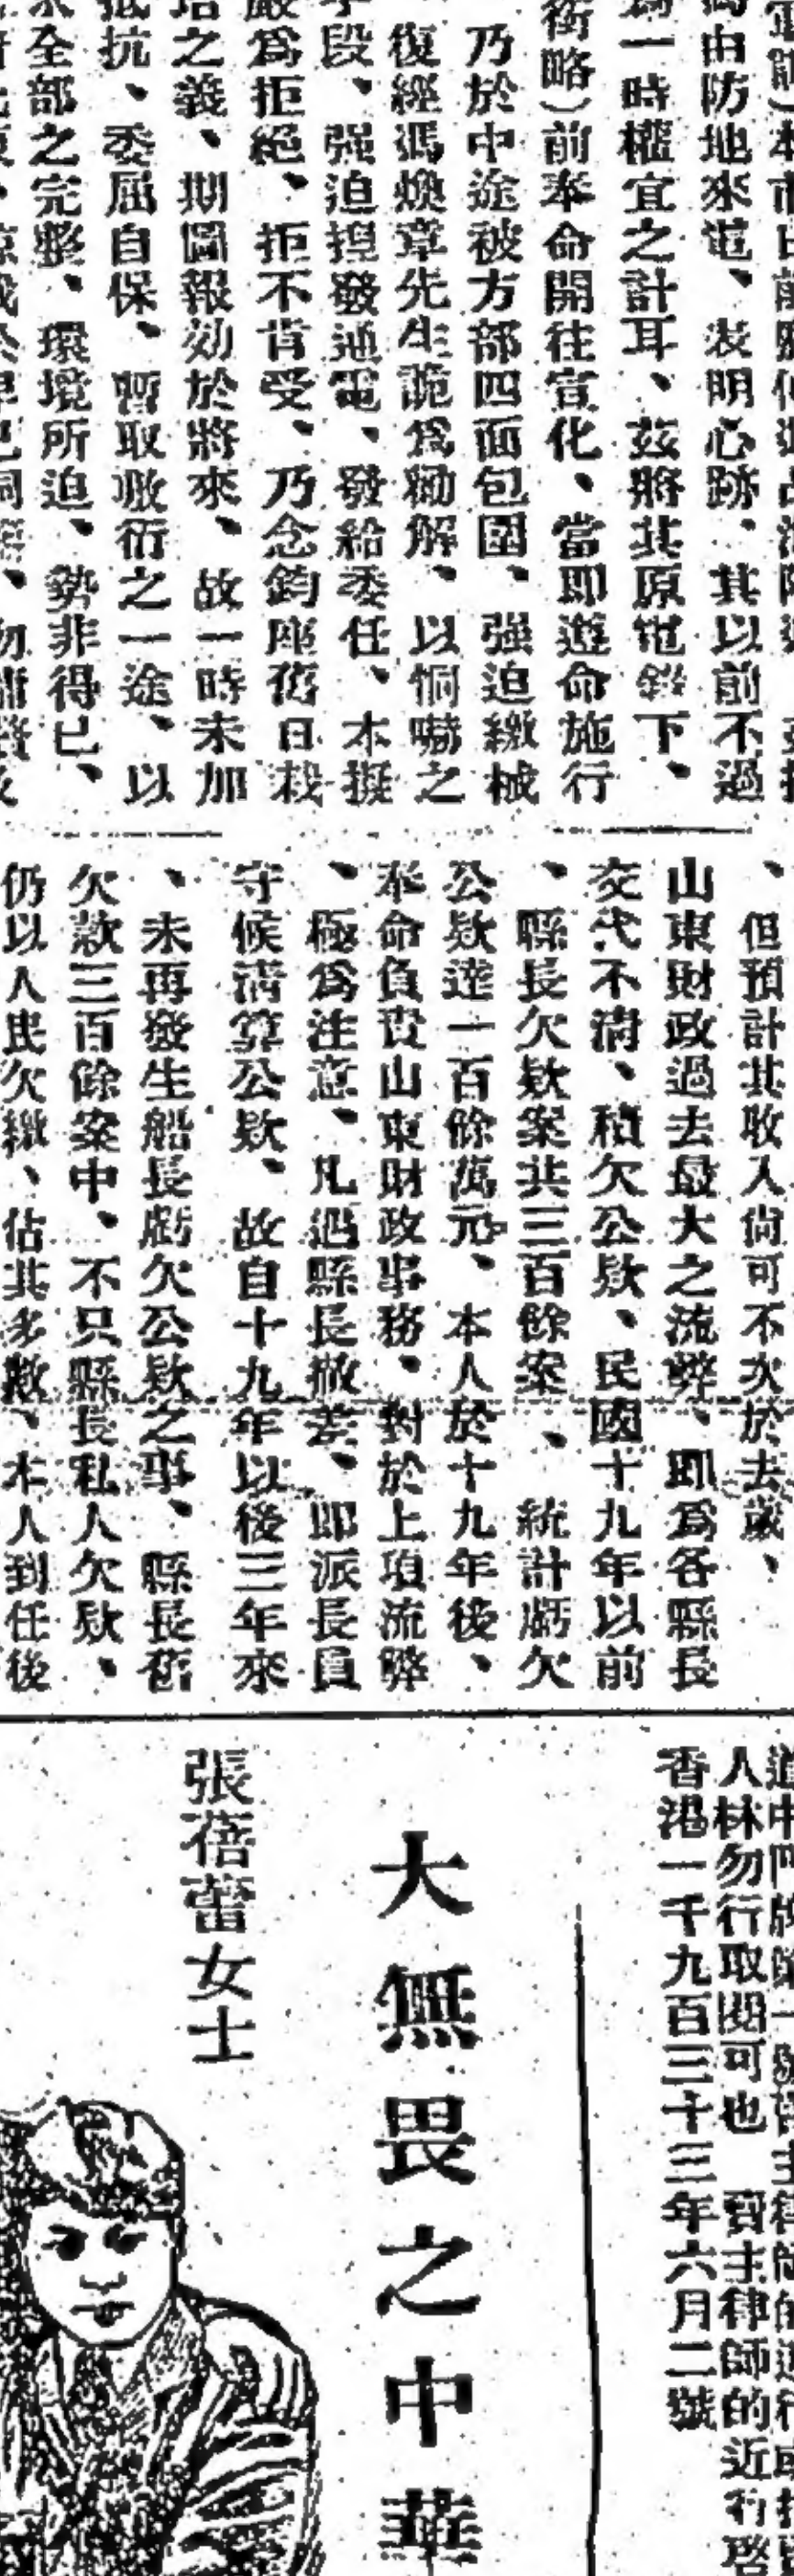 爲由防地來電、表明心跡、其以前不過
爲一時權宜之計耳、茲將其原電錄下、
衔略)前奉命開往宣化、當即遵命施行
乃於中途被方部四面包圍、强迫繳械
復經馮煥章先生詭爲勸解、以恫嚇之
手段、强迫揑發通電、發給委任、本擬
嚴爲拒絕、拒不肯受、乃念鈞座舊日栽
培之義、期圖報効於將來、故一時未加
抵抗、委屈自保、暫取敷衍之一途、以
求全部之完整、環境所迫、勢非得已、
、但預計其收入尙可不次於去歲、
山東財政過去最大之流弊、即爲各縣長
交代不淸、積欠公欵、民國十九年以前
、縣長欠欵案共三百餘案、統計虧欠
公欵達一百餘萬元、本人於十九年後、
奉命負責山東財政事務、對於上項流弊
、極爲注意、凡遇縣長撤差、即派長員
守候淸算公欵、故自十九年以後三年來
、未再發生船長虧欠公欵之事、縣長舊
欠款三百餘案中、不只縣長私人欠欵、
仍以人民欠繳、估其多數、本人到任後
人林勿行取閱可也 寳主律師的近行啓
香港一千九百三十三年六月二號
大無畏之中華
張蓓蕾女士